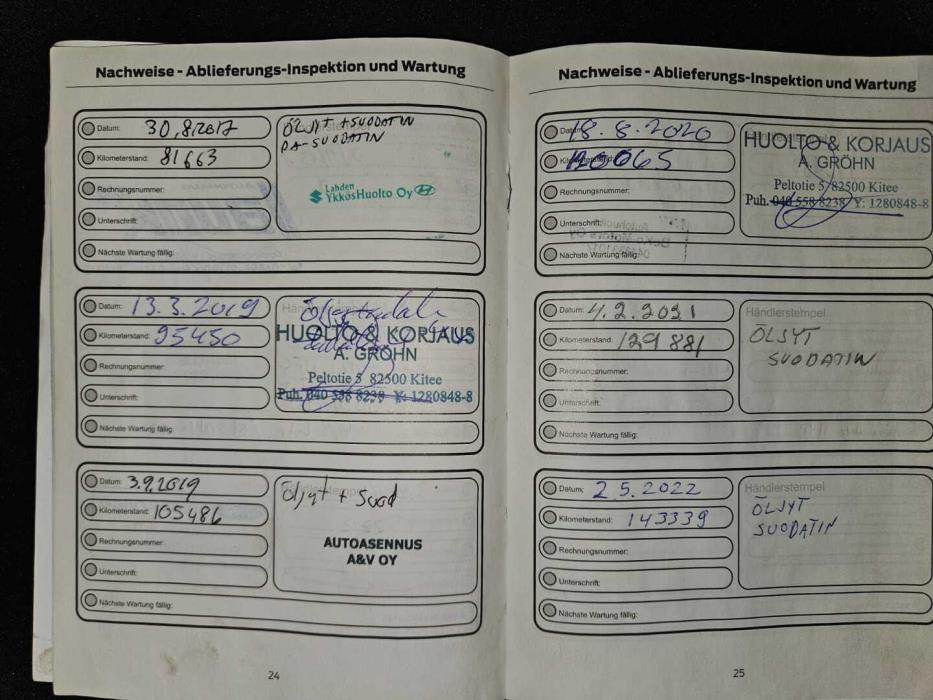 Nachweise - Ablieferungs-Inspektion und Wartung
Datum: 30,8,2017
Kilometerstand: 81663
Rechnungsnummer:
Unterschrift:
Nächste Wartung fällig:
ÖLJYT + SUODATIN
PA-SUODATIN
Lahden
YkkösHuolto Oy
Datum: 13.3.2019
Kilometerstand: 95450
Rechnungsnummer:
Unterschrift:
Nächste Wartung fällig:
HUOLTO & KORJAUS
A. GRÖHN
Peltotie 5 82500 Kitee
Puh. 040 558 8238 Y: 1280848-8
Datum: 3.9.2019
Kilometerstand: 105486
Rechnungsnummer:
Unterschrift:
Nächste Wartung fällig:
Öljyt + Suod
AUTOASENNUS
A&V OY
24
Nachweise - Ablieferungs-Inspektion und Wartung
Datum: 18.8.2020
Kilometerstand: 120065
Rechnungsnummer:
Unterschrift:
Nächste Wartung fällig:
HUOLTO & KORJAUS
A. GRÖHN
Peltotie 5 82500 Kitee
Puh. 040 558 8238 Y: 1280848-8
Datum: 4.2.2021
Kilometerstand: 129881
Rechnungsnummer:
Unterschrift:
Nächste Wartung fällig:
Händlerstempel
ÖLJYT
SUODATIN
Datum: 2 5.2022
Kilometerstand: 143339
Rechnungsnummer:
Unterschrift:
Nächste Wartung fällig:
Händlerstempel
ÖLJYT
SUODATIN
25